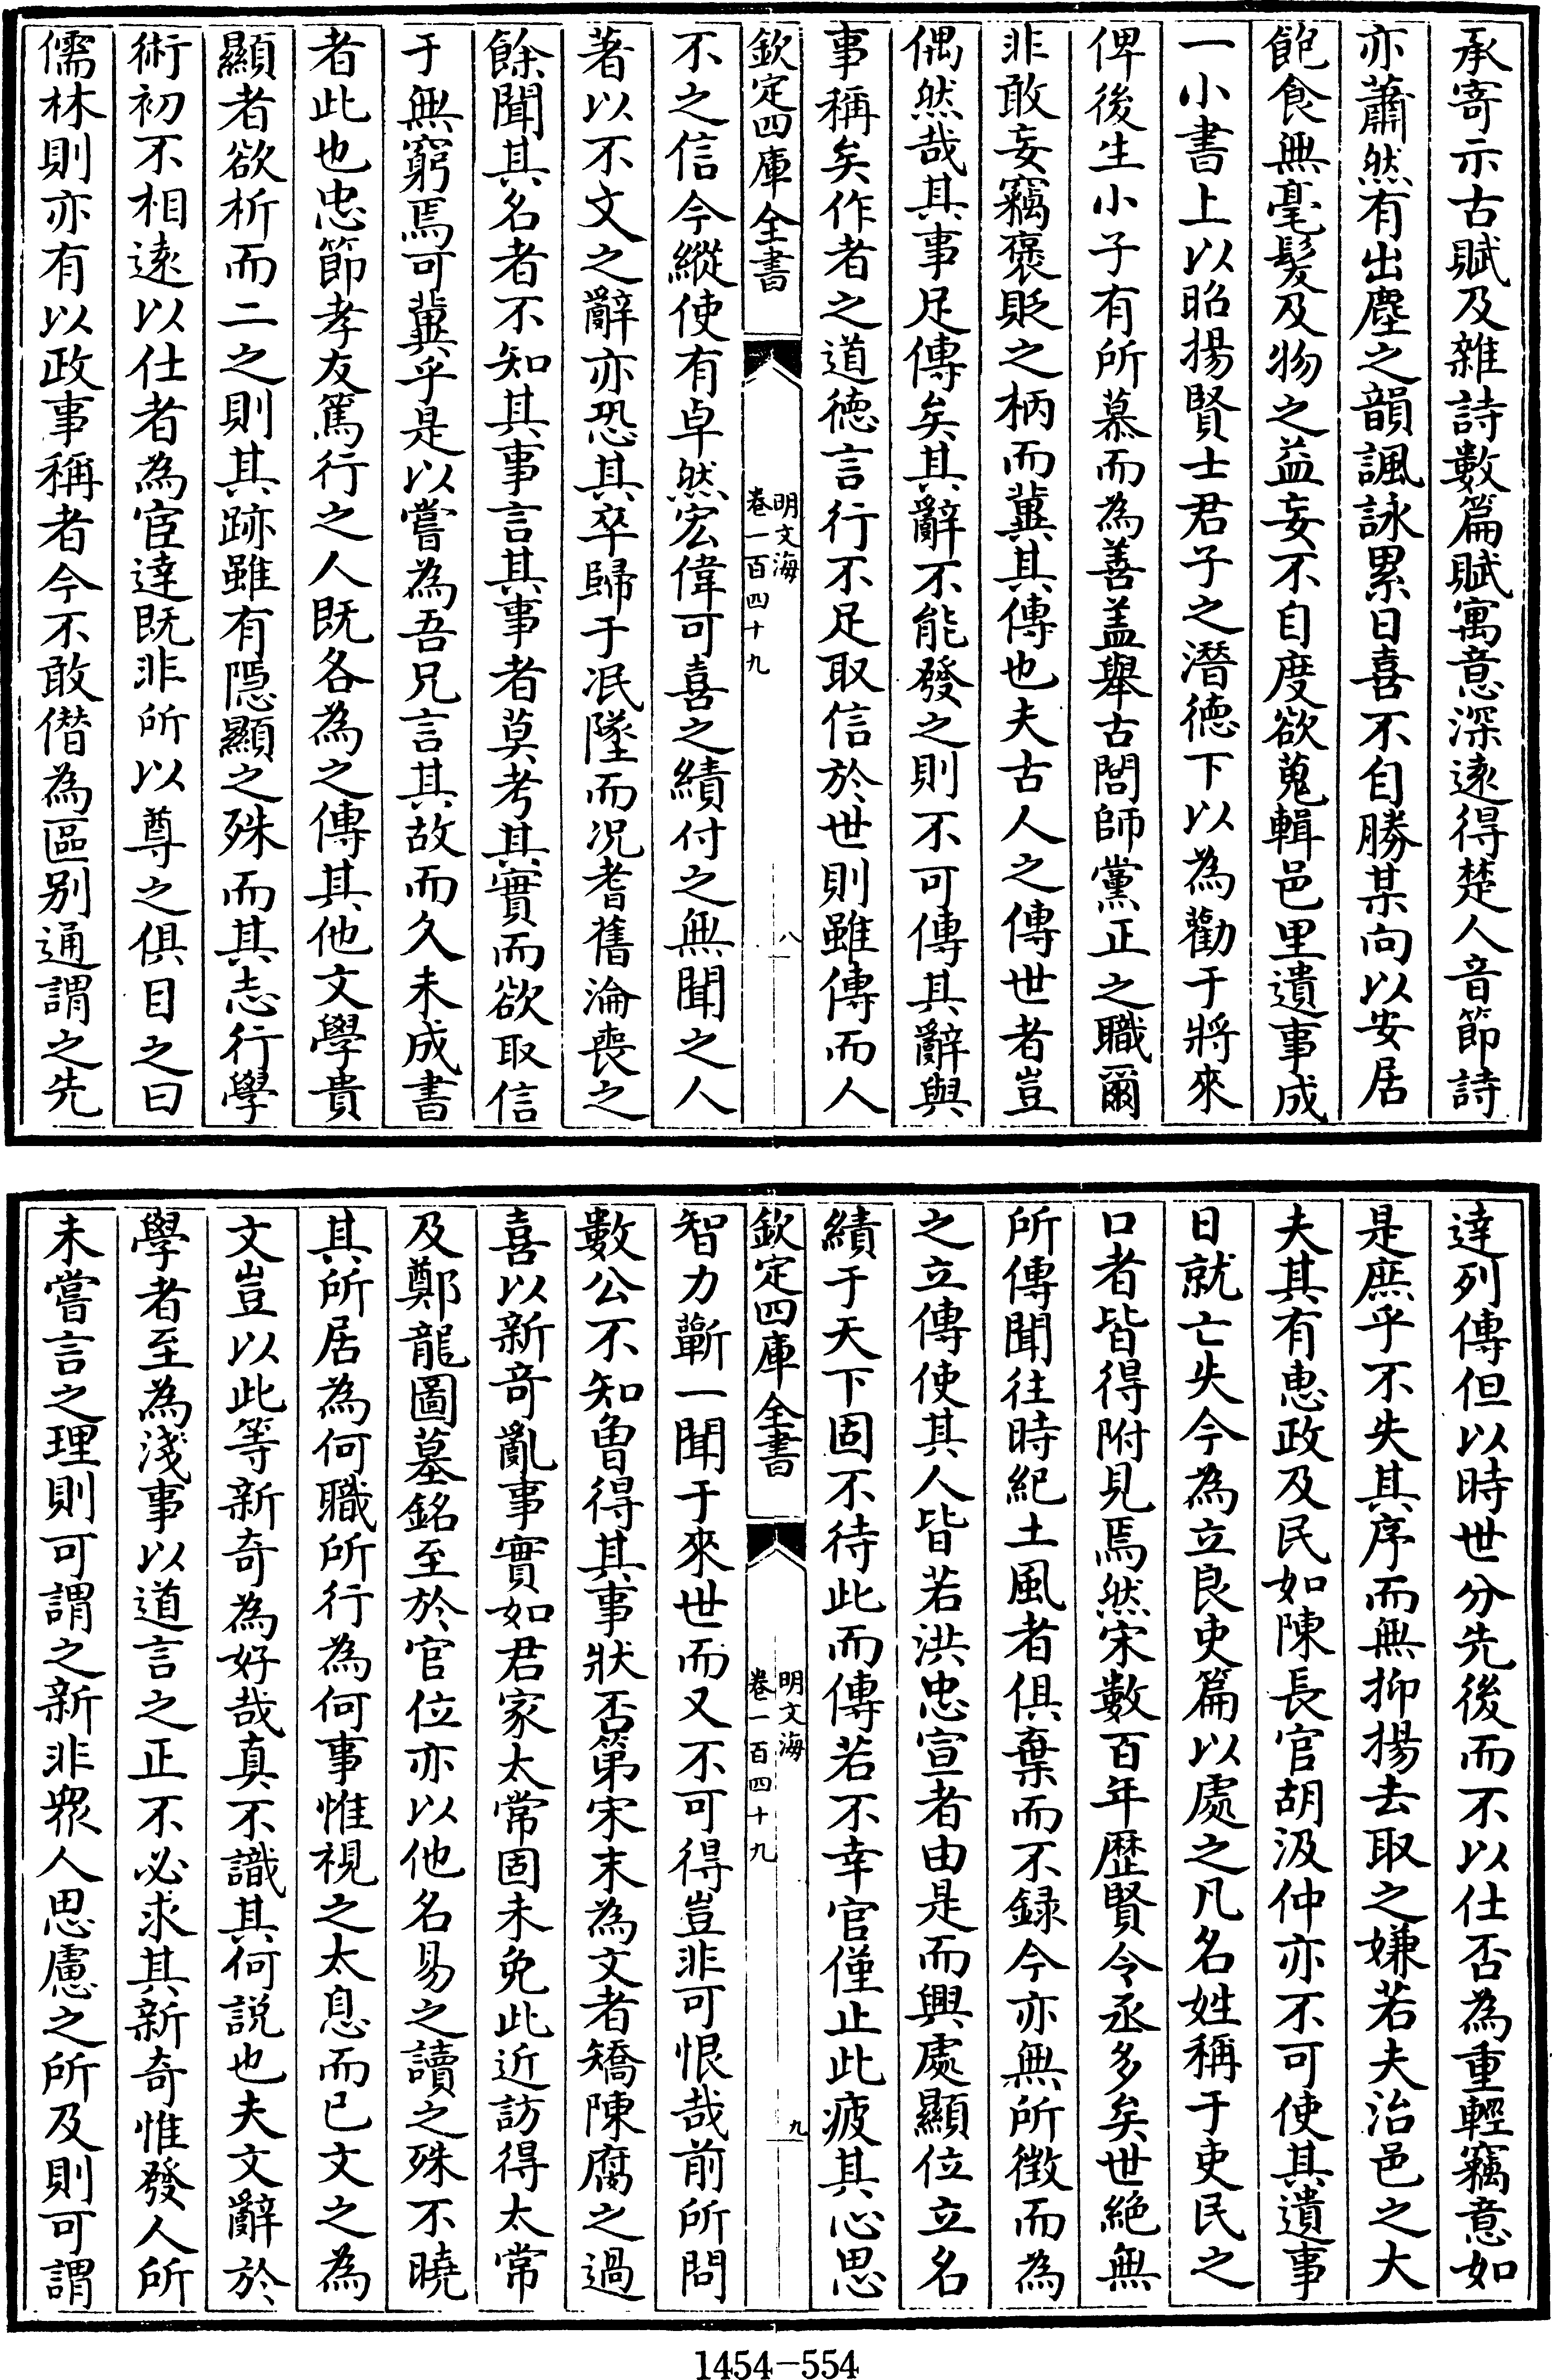 承寄示古賦及雜詩數篇賦寓意深遠得楚人音節詩
亦蕭然有出塵之韻諷詠累日喜不自勝某向以安居
飽食無毫髮及物之益妄不自度欲蒐輯邑里遺事成
一小書上以昭揚賢士君子之潛德下以為勸于將來
俾後生小子有所慕而為善蓋舉古閭師黨正之職爾
非敢妄竊褒貶之柄而冀其傳也夫古人之傳世者豈
偶然哉其事足傳矣其辭不能發之則不可傳其辭與
事稱矣作者之道德言行不足取信於世則雖傳而人
欽定四庫全書
明文海
卷一百四十九
八
不之信今縱使有卓然宏偉可喜之績付之無聞之人
著以不文之辭亦恐其卒歸于泯墜而况耆舊淪喪之
餘聞其名者不知其事言其事者莫考其實而欲取信
于無窮焉可冀乎是以嘗為吾兄言其故而久未成書
者此也忠節孝友篤行之人既各為之傳其他文學貴
顯者欲析而二之則其跡雖有隱顯之殊而其志行學
術初不相遠以仕者為宦達既非所以尊之俱目之曰
儒林則亦有以政事稱者今不敢僭為區别通謂之先
達列傳但以時世分先後而不以仕否為重輕竊意如
是庶乎不失其序而無抑揚去取之嫌若夫治邑之大
夫其有惠政及民如陳長官胡汲仲亦不可使其遺事
日就亡失今為立良吏篇以處之凡名姓稱于吏民之
口者皆得附見焉然宋數百年歷賢令丞多矣世絶無
所傳聞往時紀土風者俱棄而不録今亦無所徴而為
之立傳使其人皆若洪忠宣者由是而興處顯位立名
績于天下固不待此而傳若不幸官僅止此疲其心思
欽定四庫全書
明文海
卷一百四十九
九
智力蘄一聞于來世而又不可得豈非可恨哉前所問
數公不知曽得其事狀否第宋末為文者矯陳腐之過
喜以新奇亂事實如君家太常固未免此近訪得太常
及鄭龍圖墓銘至於官位亦以他名易之讀之殊不曉
其所居為何職所行為何事惟視之太息而已文之為
文豈以此等新奇為好哉真不識其何説也夫文辭於
學者至為淺事以道言之正不必求其新奇惟發人所
未嘗言之理則可謂之新非衆人思慮之所及則可謂
1454—554